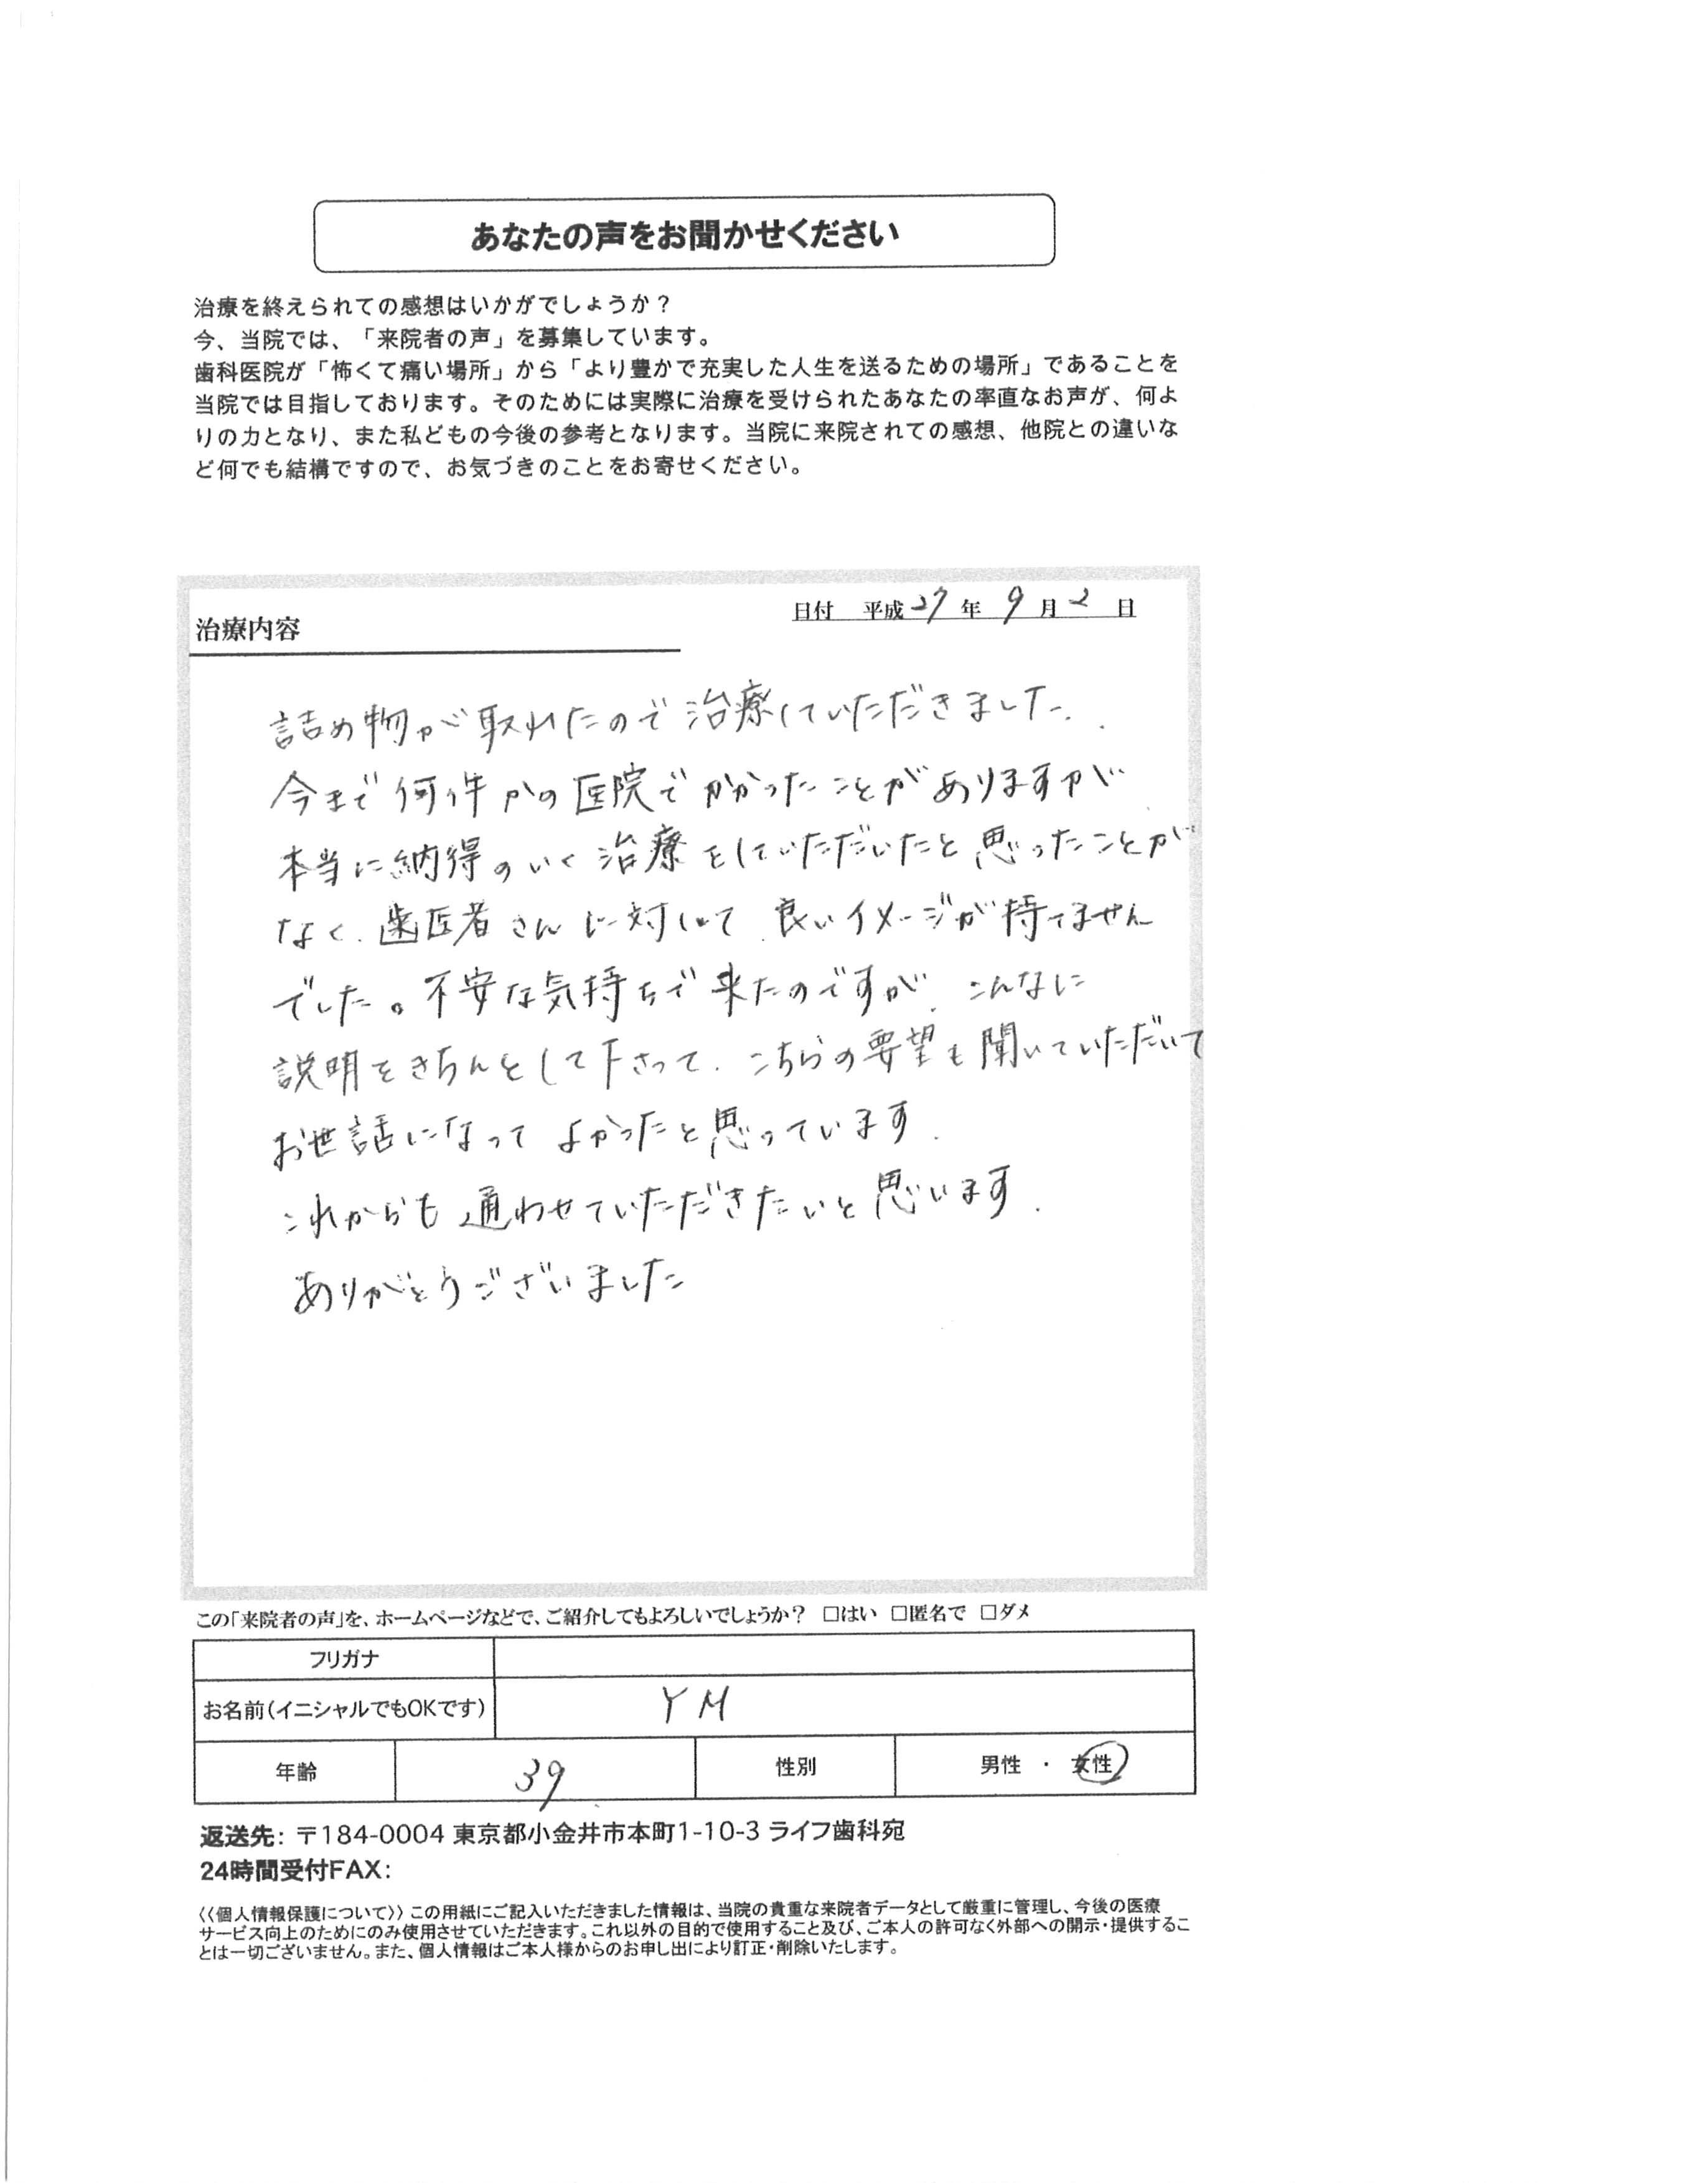 あなたの声をお聞かせください
治療を終えられての感想はいかがでしょうか？
今、当院では、「来院者の声」を募集しています。
歯科医院が「怖くて痛い場所」から「より豊かで充実した人生を送るための場所」であることを
当院では目指しております。そのためには実際に治療を受けられたあなたの率直なお声が、何よ
りの力となり、また私どもの今後の参考となります。当院に来院されての感想、他院との違いな
ど何でも結構ですので、お気づきのことをお寄せください。
日付 平成27年9月2日
治療内容
詰め物が取れたので治療していただきました.
今まで何件かの医院でかかったことがありますが
本当に納得のいく治療をしていただいたと思ったことが
なく、歯医者さんに対して、良いイメージが持てません
でした。不安な気持ちで来たのですが、こんなに
説明をきちんとして下さって、こちらの要望も聞いていただいて
お世話になって よかったと思っています.
これからも通わせていただきたいと思います.
ありがとうございました
この「来院者の声」を、ホームページなどで、ご紹介してもよろしいでしょうか？ □はい □匿名で □ダメ
フリガナ
お名前（イニシャルでもOKです） YM
年齢 39 性別 男性 ・ 女性
返送先： 〒184-0004 東京都小金井市本町1-10-3 ライフ歯科宛
24時間受付FAX：
〈〈個人情報保護について〉〉この用紙にご記入いただきました情報は、当院の貴重な来院者データとして厳重に管理し、今後の医療
サービス向上のためにのみ使用させていただきます。これ以外の目的で使用すること及び、ご本人の許可なく外部への開示・提供するこ
とは一切ございません。また、個人情報はご本人様からのお申し出により訂正・削除いたします。